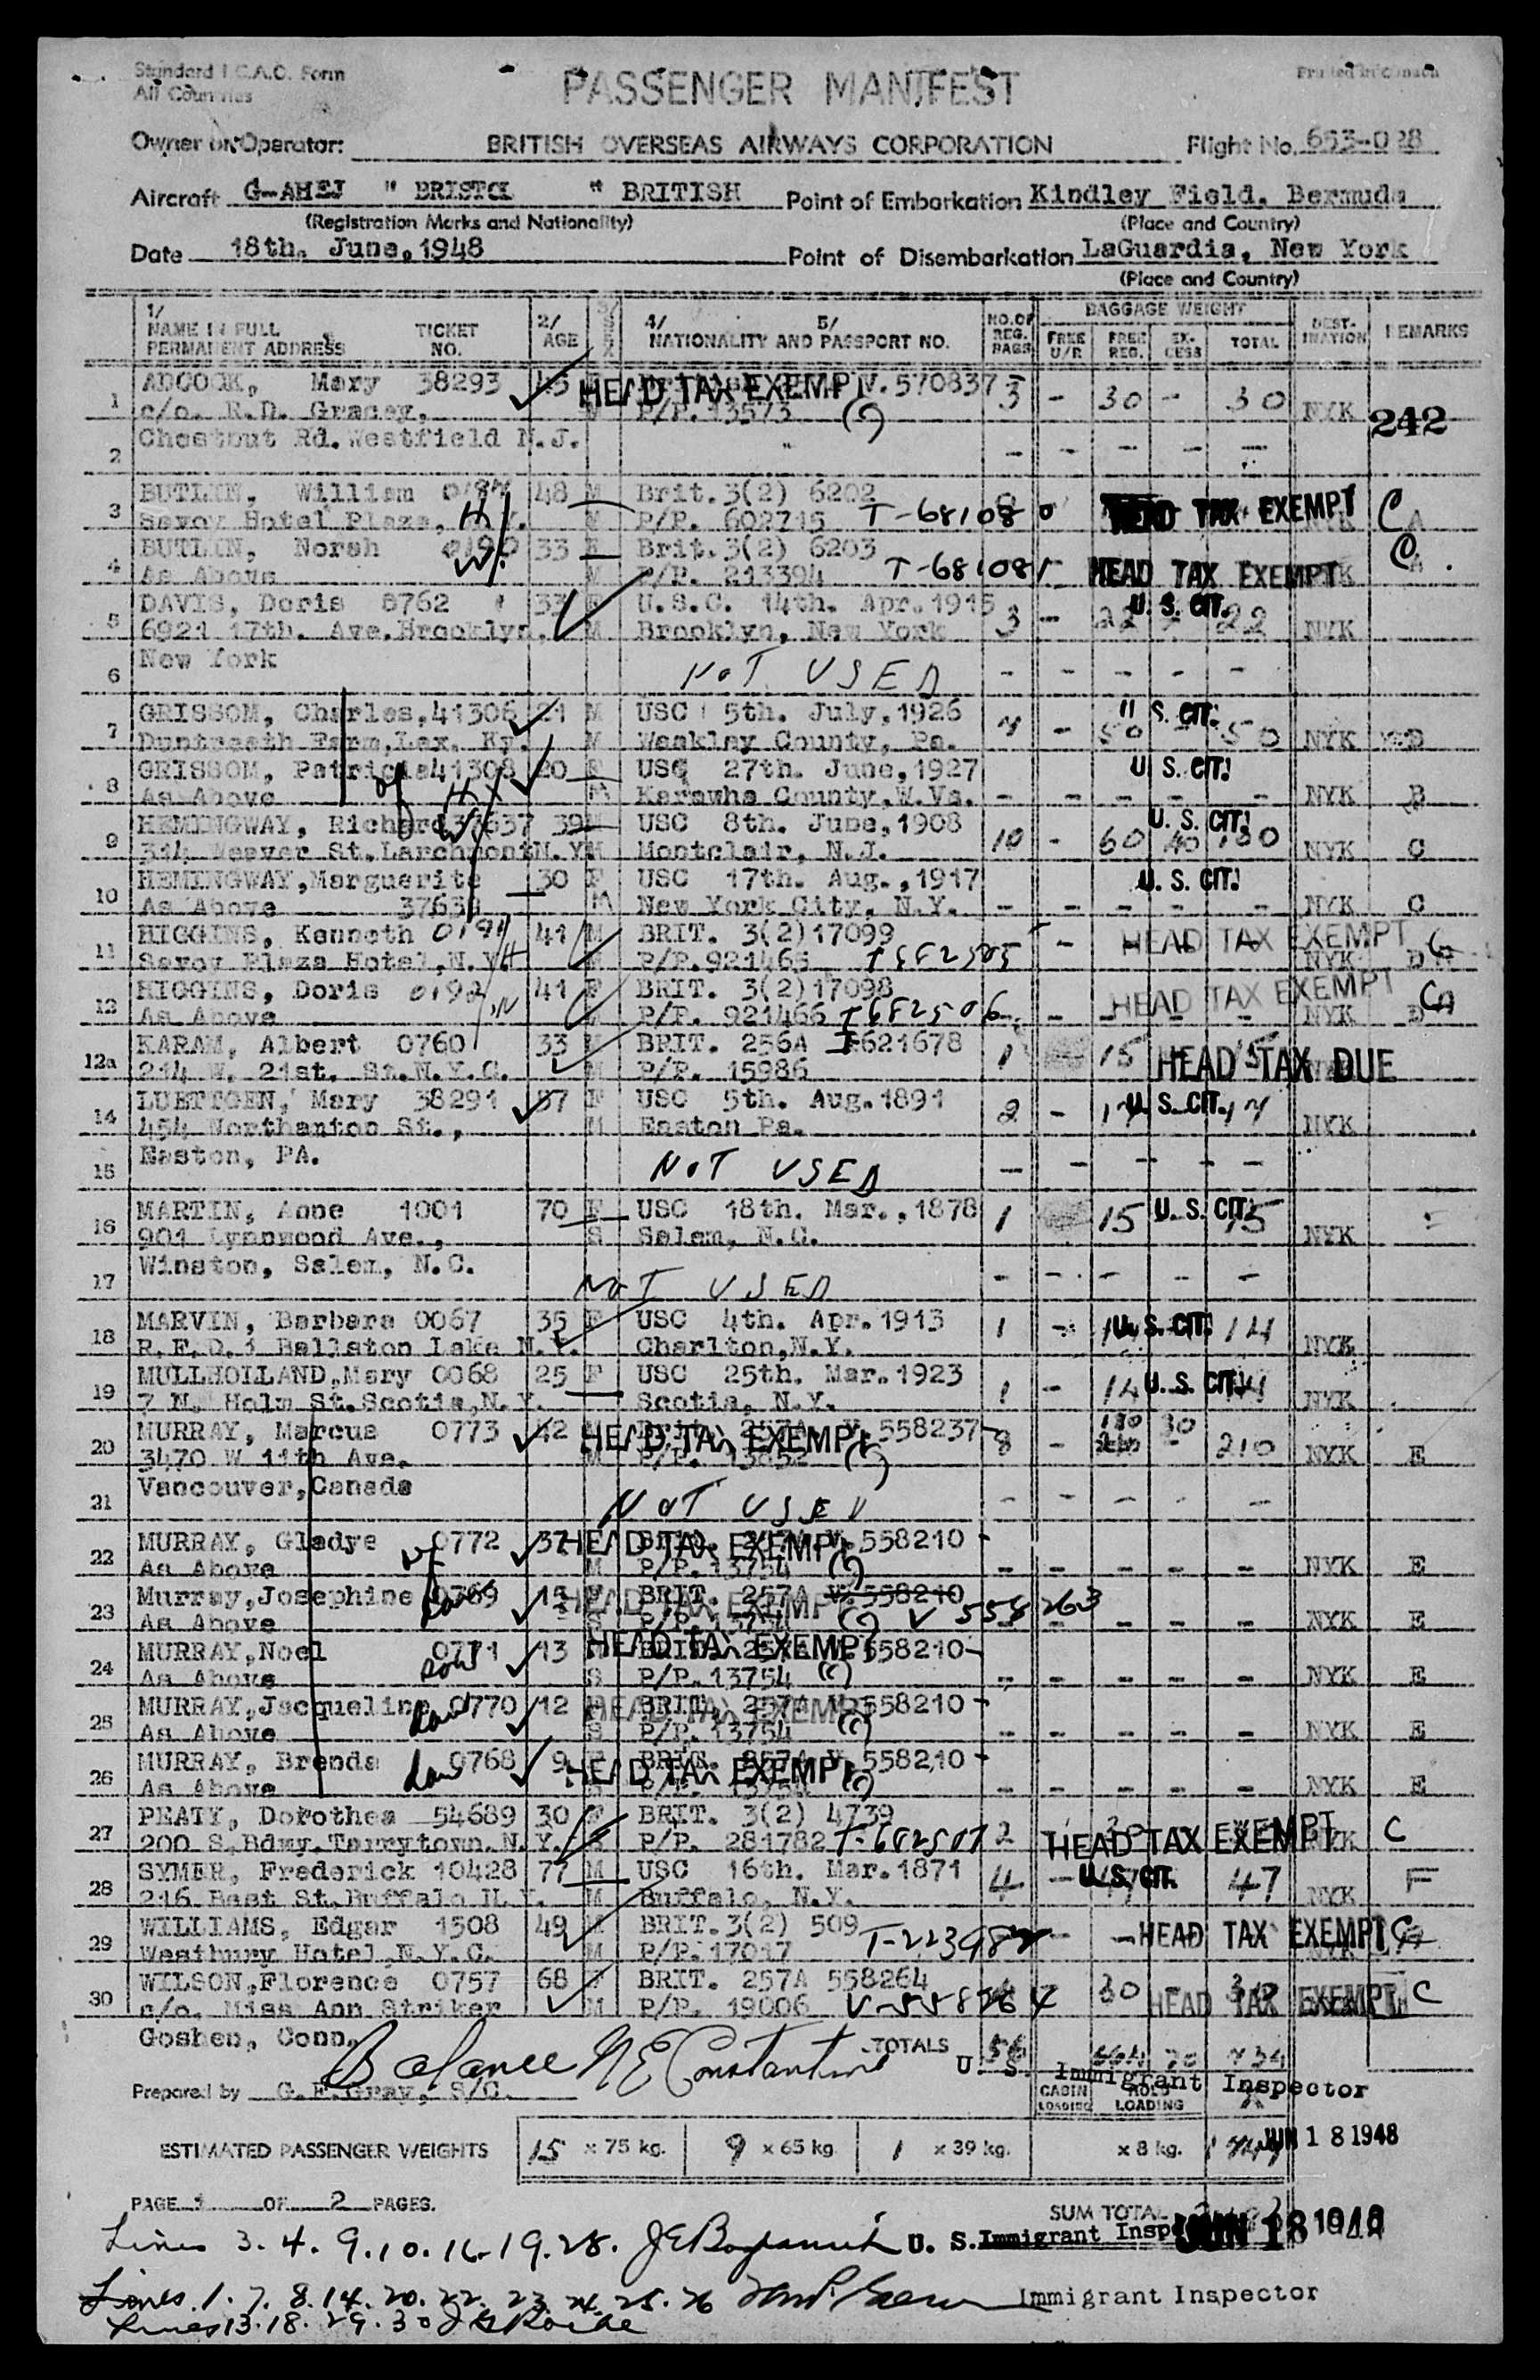 Standard I.C.A.O. Form
All Countries
PASSENGER MANIFEST
Printed in Canada
Owner or Operator: BRITISH OVERSEAS AIRWAYS CORPORATION Flight No. 653-028
Aircraft G-AHEJ " BRISTOL " BRITISH Point of Embarkation Kindley Field, Bermuda
(Registration Marks and Nationality) (Place and Country)
Date 18th. June, 1948 Point of Disembarkation LaGuardia, New York
(Place and Country)
1/ NAME IN FULL PERMANENT ADDRESS TICKET NO. 2/ AGE 3/ SEX 4/ 5/ NATIONALITY AND PASSPORT NO. NO. OF REG. BAGS BAGGAGE WEIGHT FREE U/R FREE REG. EX- CESS TOTAL DEST- INATION REMARKS
1 ADCOCK, Mary 38293 45 HEAD TAX EXEMPT V. 570837 3 - 30 - 30
c/o. R.D. Graney, P/P. 13573 (C) NYK 242
2 Chestnut Rd. Westfield N.J. - - - - -
3 BUTLIN, William 48 M Brit. 3(2) 6202
Savoy Hotel Plaza, N.Y. M P/P. 602715 T-681080 HEAD TAX EXEMPT C
4 BUTLIN, Norah 0190 33 F Brit. 3(2) 6203
As Above M P/P. 213394 T-681081 HEAD TAX EXEMPT C
5 DAVIS, Doris 0762 33 F U.S.C. 14th. Apr. 1915 3 - 22 - 22 U. S. CIT.
6921 17th. Ave. Brooklyn, M Brooklyn, New York NYK
6 New York NOT USED - - - - -
7 GRISSOM, Charles, 41306 21 M USC 5th. July, 1926 U. S. CIT. 50 50
Duntreath Farm, Lex. Ky. M Weakley County, Pa. NYK B
8 GRISSOM, Patricia 41308 20 F USC 27th. June, 1927 U. S. CIT.
As Above M Karawha County, W. Va. - - - - - NYK B
9 HEMINGWAY, Richard 37637 39 M USC 8th. June, 1908 10 - 60 40 100 U. S. CIT.
314 Weaver St. Larchmont N.Y. M Montclair, N.J. NYK C
10 HEMINGWAY, Marguerite 30 F USC 17th. Aug., 1917 U. S. CIT.
As Above M New York City, N.Y. - - - - - NYK C
11 HIGGINS, Kenneth 41 M BRIT. 3(2) 17099 HEAD TAX EXEMPT
Savoy Plaza Hotel, N.Y. P/P. 921465 T682505 NYK
12 HIGGINS, Doris 0192 41 F BRIT. 3(2) 17098 HEAD TAX EXEMPT
As Above P/P. 921466 T682506 NYK
12a KARAM, Albert 0760 33 M BRIT. 256A 621678 1 15 15 HEAD TAX DUE
214 W. 21st. St. N.Y.C. M P/P. 15986
14 LUETTGEN, Mary 38291 57 F USC 5th. Aug. 1891 2 - 17 17 U. S. CIT.
454 Northanton St., M Easton Pa. NYK
15 Easton, PA. NOT USED - - - - -
16 MARTIN, Anne 1001 70 F USC 18th. Mar., 1878 1 15 15 U. S. CIT.
901 Lynnwood Ave., S Salem, N.C. NYK
17 Winston, Salem, N.C. NOT USED - - - - -
18 MARVIN, Barbara 0067 35 F USC 4th. Apr. 1913 1 - 14 14 U. S. CIT.
R.F.D. 1 Ballston Lake N.Y. Charlton, N.Y. NYK
19 MULLHOLLAND, Mary 0068 25 F USC 25th. Mar. 1923 1 - 14 14 U. S. CIT.
7 N. Holm St. Scotia, N.Y. Scotia, N.Y. NYK
20 MURRAY, Marcus 0773 42 M Brit. 257A V. 558237 HEAD TAX EXEMPT 8 - 180 30 210
3470 W 11th Ave. M P/P. 13652 (C) NYK E
21 Vancouver, Canada NOT USED - - - - -
22 MURRAY, Gladys 0772 37 HEAD TAX EXEMPT 558210
As Above wf M P/P. 13754 (C) - - - - - NYK E
23 Murray, Josephine 0769 15 F BRIT. 257A V. 558210 HEAD TAX EXEMPT
As Above dau S P/P. 13754 (C) V 558263 - - - - NYK E
24 MURRAY, Noel 0771 13 HEAD TAX EXEMPT 558210
As Above son S P/P. 13754 (C) - - - - - NYK E
25 MURRAY, Jacqueline 0770 12 F BRIT. 257A V. 558210 HEAD TAX EXEMPT
As Above dau S P/P. 13754 (C) - - - - - NYK E
26 MURRAY, Brenda 0768 9 HEAD TAX EXEMPT 558210
As Above dau S P/P. 13754 (C) - - - - - NYK E
27 PEATY, Dorothea 54689 30 F BRIT. 3(2) 4739
200 S. Bdwy. Tarrytown, N.Y. S P/P. 281782 T-682507 2 HEAD TAX EXEMPT C
28 SYMER, Frederick 10428 77 M USC 16th. Mar. 1871 4 - 47 47 U. S. CIT.
216 East St. Buffalo N.Y. M Buffalo, N.Y. NYK F
29 WILLIAMS, Edgar 1508 49 M BRIT. 3(2) 509 HEAD TAX EXEMPT C
Westbury Hotel, N.Y.C. M P/P. 17017
30 WILSON, Florence 0757 68 F BRIT. 257A 558264 30 - 30
c/o. Miss Ann Striker M P/P. 19006 V-558264 HEAD TAX EXEMPT C
Goshen, Conn.
Balance N E Constantine TOTALS 56 664 70 734
U. S. Immigrant Inspector
Prepared by G.F. Gray, S/C. CABIN LOADING HOLD LOADING
ESTIMATED PASSENGER WEIGHTS 15 x 75 kg. 9 x 65 kg. 1 x 39 kg. x 8 kg. JUN 18 1948
PAGE 1 OF 2 PAGES. SUM TOTAL
Lines 3. 4. 9. 10. 16. 19. 28. U. S. Immigrant Inspector JUN 18 1948
Lines 1. 7. 8. 14. 20. 22. 23. 24. 25. 26 Immigrant Inspector
Lines 13. 18. 29. 30